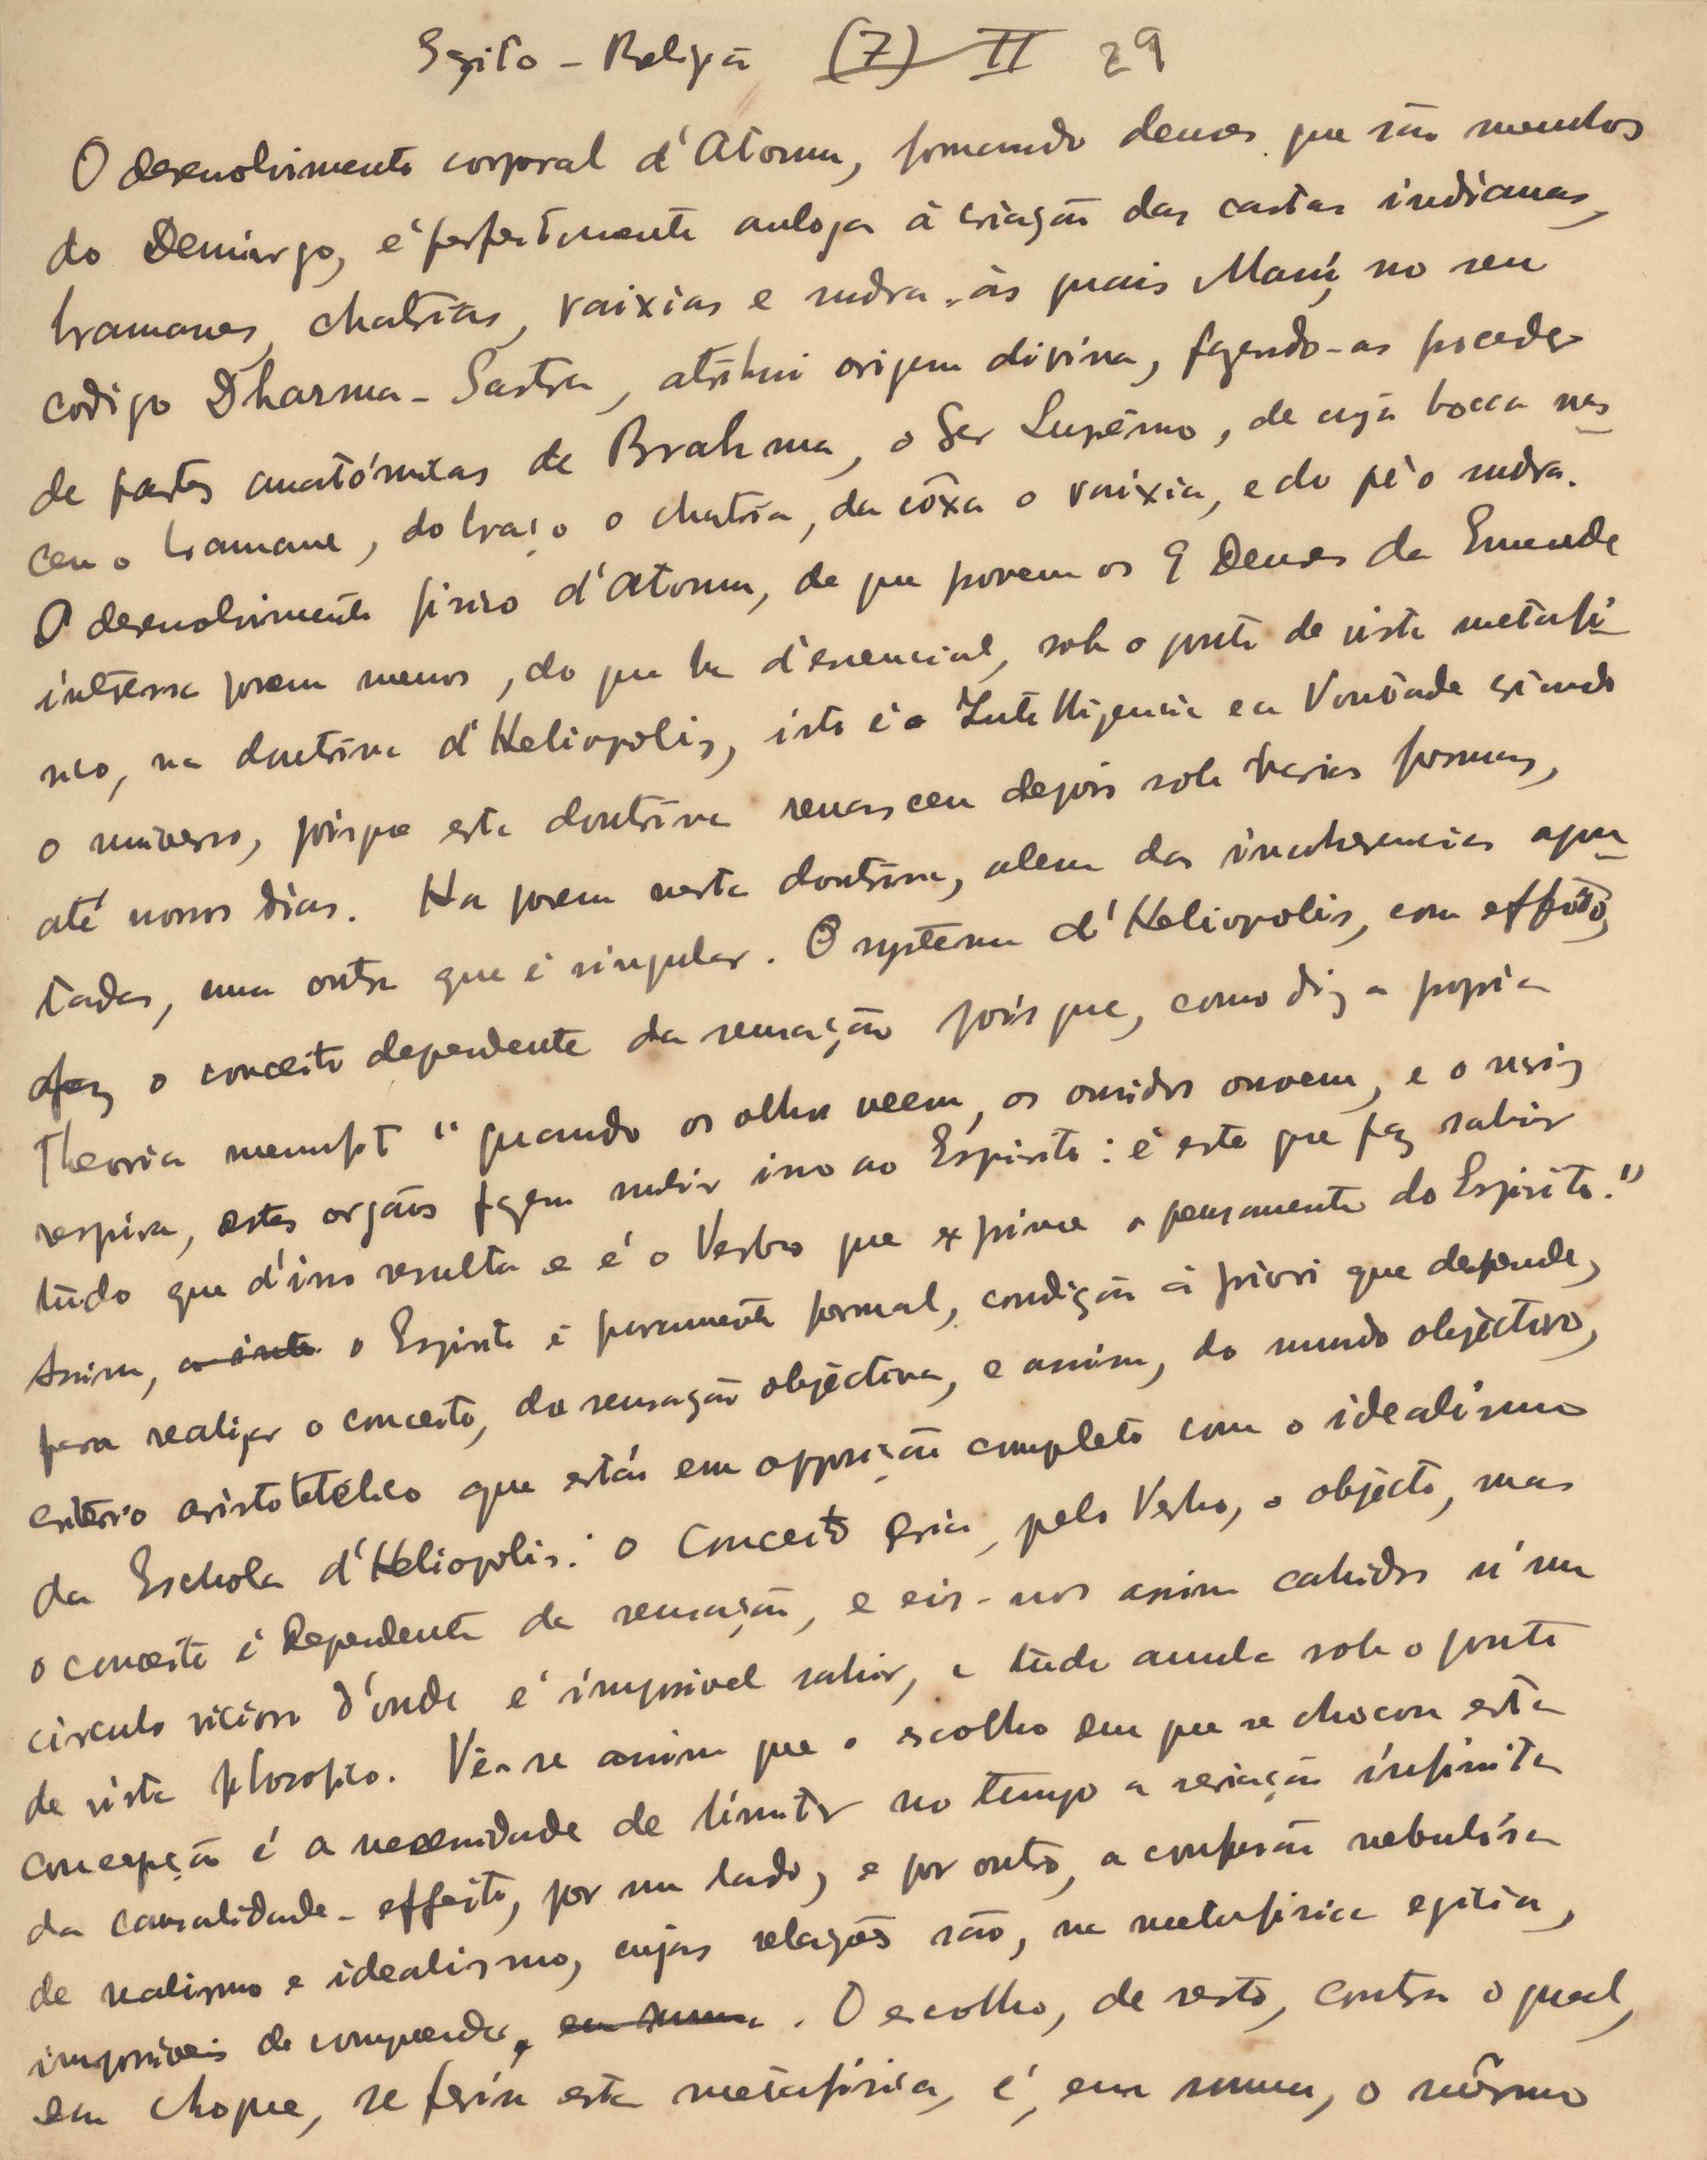 Egito - Religiã (7) II 29
O desenvolvimento corporal d'Atoum, formando deuses que são membros
do Demiurgo, é perfeitamente anloga á criação das castas indianas,
bramanes, chatrias, vaixias e sudra, às quais Manú, no seu
codigo Dharma-Sastra, atribui origem divina, fazendo-as proceder
de partes anatómicas de Brahma, o Ser Suprêmo, de cuja bocca nas
ceu o bramane, do braço o chatria, da côxa o vaixia, e do pé o sudra.
O desenvolvimento fisico d'Atoum, de que provem os 9 Deuses da Eneade
interessa porem menos, do que ha d'essencial, sob o ponto de vista metafi
sico, na doutrina d'Heliopolis, isto é a Intelligencia e a Vontade criando
o universo, pois que esta doutrina renasceu depois sob varias formas,
até nossos dias. Ha porem nesta doutrina, alem das incoherencias apon
tadas, uma outra que é singular. O systema d'Heliopolis, com effeito,
faz o conceito dependente da sensação pois que, como diz a propria
Theoria memfit "quando os olhos veem, os ouvidos ouvem, e o nariz
respira, estes orgãos fazem subir isso ao Espirito: é este que faz sahir
tudo que d'isso resulta e é o Verbo que exprime o pensamento do Espirito."
Assim, o Espirito é puramente formal, condição á priori que depende,
para realizar o conceito, da sensação objectiva, e assim, do mundo objectivo,
criterio aristotélico que está em opposição completa com o idealismo
da Eschola d'Heliopolis: o Conceito cria, pelo Verbo, o objecto, mas
o conceito é dependente da sensação, e eis-nos assim cahidos n'um
circulo vicioso d'onde é impossivel sahir, e tudo anula sob o ponto
de vista filosofico. Vê-se assim que o escolho em que se chocou esta
concepção é a necessidade de limitar no tempo a seriação infinita
da causalidade-effeito, por um lado, e por outro, a confusão nebulósa
de realismo e idealismo, cujas relações são, na metafisica egitia,
impossiveis de comprender. O escolho, de resto, contra o qual,
em choque, se feriu esta metafisica, é, em suma, o mêsmo